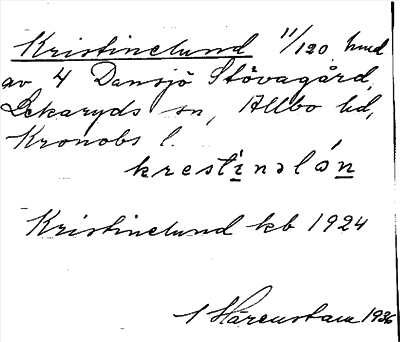 Kristinelund 11/120 hmd
av 4 Dansjö Stövagård,
Lekaryds sn, Allbo hd,
Kronobs l.
krestinəlón
Kristinelund kb 1924
Härenstam 1936